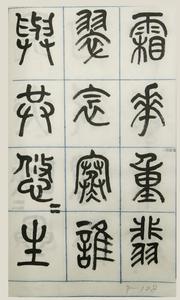 霜華重翡
翠衾寒誰
與共悠〻生